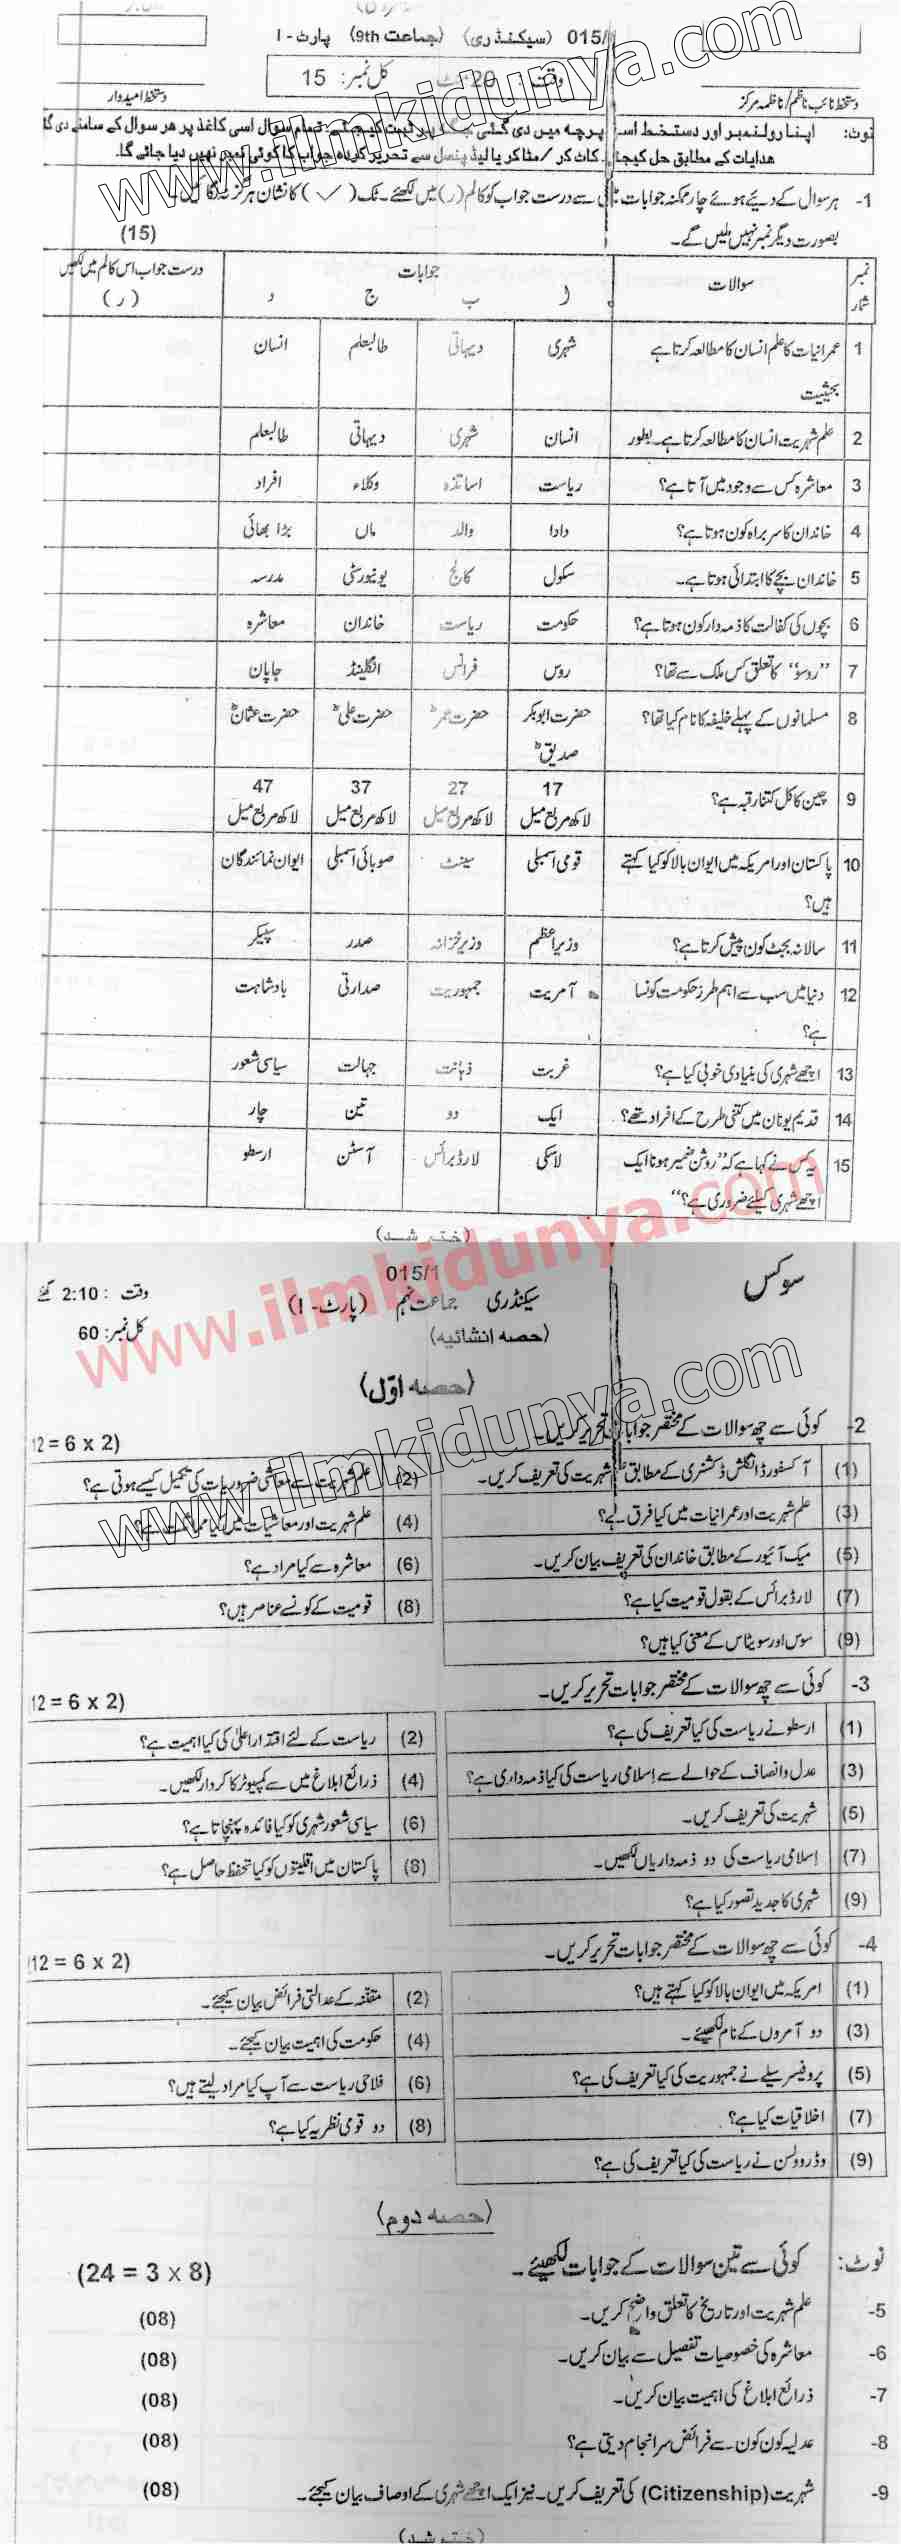 015/ (سیکنڈری) (جماعت 9th) پارٹ - I
وقت : 20 منٹ کل نمبر: 15
دستخط نائب ناظم/ناظمہ مرکز
دستخط امیدوار
نوٹ: اپنا رولنمبر اور دستخط اس پرچہ میں دی گئی جگہ پر ثبت کیجئے۔ تمام سوال اسی کاغذ پر ھر سوال کے سامنے دی گا
ھدایات کے مطابق حل کیجئے۔ کاٹ کر/مٹا کر یا لیڈ پنسل سے تحریر کردہ جواب کا کوئی نمبر نھیں دیا جائے گا۔
1- ہر سوال کے دیئے ہوئے چار ممکنہ جوابات میں سے درست جواب کو کالم (ر) میں لکھئے۔ ٹک (✓) کا نشان ہرگز نہ لگائیں۔
بصورت دیگر نمبر نہیں ملیں گے۔ (15)
نمبر شمار سوالات جوابات درست جواب اس کالم میں لکھیں
ا ب ج د (ر)
1 عمرانیات کا علم انسان کا مطالعہ کرتا ہے بحیثیت شہری دیہاتی طالبعلم انسان
2 علم شہریت انسان کا مطالعہ کرتا ہے۔ بطور انسان شہری دیہاتی طالبعلم
3 معاشرہ کس سے وجود میں آتا ہے؟ ریاست اساتذہ وکلاء افراد
4 خاندان کا سربراہ کون ہوتا ہے؟ دادا والد ماں بڑا بھائی
5 خاندان بچے کا ابتدائی ہوتا ہے۔ سکول کالج یونیورسٹی مدرسہ
6 بچوں کی کفالت کا ذمہ دار کون ہوتا ہے؟ حکومت ریاست خاندان معاشرہ
7 ”روسو“ کا تعلق کس ملک سے تھا؟ روس فرانس انگلینڈ جاپان
8 مسلمانوں کے پہلے خلیفہ کا نام کیا تھا؟ حضرت ابوبکر صدیقؓ حضرت عمرؓ حضرت علیؓ حضرت عثمانؓ
9 چین کا کل کتنا رقبہ ہے؟ 17 لاکھ مربع میل 27 لاکھ مربع میل 37 لاکھ مربع میل 47 لاکھ مربع میل
10 پاکستان اور امریکہ میں ایوان بالا کو کیا کہتے ہیں؟ قومی اسمبلی سینٹ صوبائی اسمبلی ایوان نمائندگان
11 سالانہ بجٹ کون پیش کرتا ہے؟ وزیراعظم وزیر خزانہ صدر سپیکر
12 دنیا میں سب سے اہم طرز حکومت کونسا ہے؟ آمریت جمہوریت صدارتی بادشاہت
13 اچھے شہری کی بنیادی خوبی کیا ہے؟ غربت ذہانت جہالت سیاسی شعور
14 قدیم یونان میں کتنی طرح کے افراد تھے؟ ایک دو تین چار
15 یہ کس نے کہا ہے کہ ”روشن ضمیر ہونا ایک اچھے شہری کیلئے ضروری ہے؟“ لاسکی لارڈ برائس آسٹن ارسطو
(ختم شد)
www.ilmkidunya.com
سوکس
015/1
سیکنڈری جماعت نہم (پارٹ - I) وقت : 2:10 گھنٹے
(حصہ انشائیہ) کل نمبر: 60
(حصہ اوّل)
2- کوئی سے چھ سوالات کے مختصر جوابات تحریر کریں۔ 12 = 6 x 2)
(1) آکسفورڈ انگلش ڈکشنری کے مطابق علم شہریت کی تعریف کریں۔ (2) علم شہریت سے معاشی ضروریات کی تکمیل کیسے ہوتی ہے؟
(3) علم شہریت اور عمرانیات میں کیا فرق ہے؟ (4) علم شہریت اور معاشیات میں کیا مماثلت ہے؟
(5) میک آئیور کے مطابق خاندان کی تعریف بیان کریں۔ (6) معاشرہ سے کیا مراد ہے؟
(7) لارڈ برائس کے بقول قومیت کیا ہے؟ (8) قومیت کے کونسے عناصر ہیں؟
(9) سوس اور سویٹاس کے معنی کیا ہیں؟
3- کوئی سے چھ سوالات کے مختصر جوابات تحریر کریں۔ 12 = 6 x 2)
(1) ارسطو نے ریاست کی کیا تعریف کی ہے؟ (2) ریاست کے لئے اقتدار اعلیٰ کی کیا اہمیت ہے؟
(3) عدل و انصاف کے حوالے سے اسلامی ریاست کی کیا ذمہ داری ہے؟ (4) ذرائع ابلاغ میں سے کمپیوٹر کا کردار لکھیں۔
(5) شہریت کی تعریف کریں۔ (6) سیاسی شعور شہری کو کیا فائدہ پہنچاتا ہے؟
(7) اسلامی ریاست کی دو ذمہ داریاں لکھیں۔ (8) پاکستان میں اقلیتوں کو کیا تحفظ حاصل ہے؟
(9) شہری کا جدید تصور کیا ہے؟
4- کوئی سے چھ سوالات کے مختصر جوابات تحریر کریں۔ 12 = 6 x 2)
(1) امریکہ میں ایوان بالا کو کیا کہتے ہیں؟ (2) مقننہ کے عدالتی فرائض بیان کیجئے۔
(3) دو آمروں کے نام لکھیئے۔ (4) حکومت کی اہمیت بیان کیجئے۔
(5) پروفیسر سیلے نے جمہوریت کی کیا تعریف کی ہے؟ (6) فلاحی ریاست سے آپ کیا مراد لیتے ہیں؟
(7) اخلاقیات کیا ہے؟ (8) دو قومی نظریہ کیا ہے؟
(9) وڈرو ولسن نے ریاست کی کیا تعریف کی ہے؟
(حصہ دوم)
نوٹ: کوئی سے تین سوالات کے جوابات لکھیئے۔ (24 = 3 x 8)
5- علم شہریت اور تاریخ کا تعلق واضح کریں۔ (08)
6- معاشرہ کی خصوصیات تفصیل سے بیان کریں۔ (08)
7- ذرائع ابلاغ کی اہمیت بیان کریں۔ (08)
8- عدلیہ کون کون سے فرائض سرانجام دیتی ہے؟ (08)
9- شہریت (Citizenship) کی تعریف کریں۔ نیز ایک اچھے شہری کے اوصاف بیان کیجئے۔ (08)
(ختم شد)